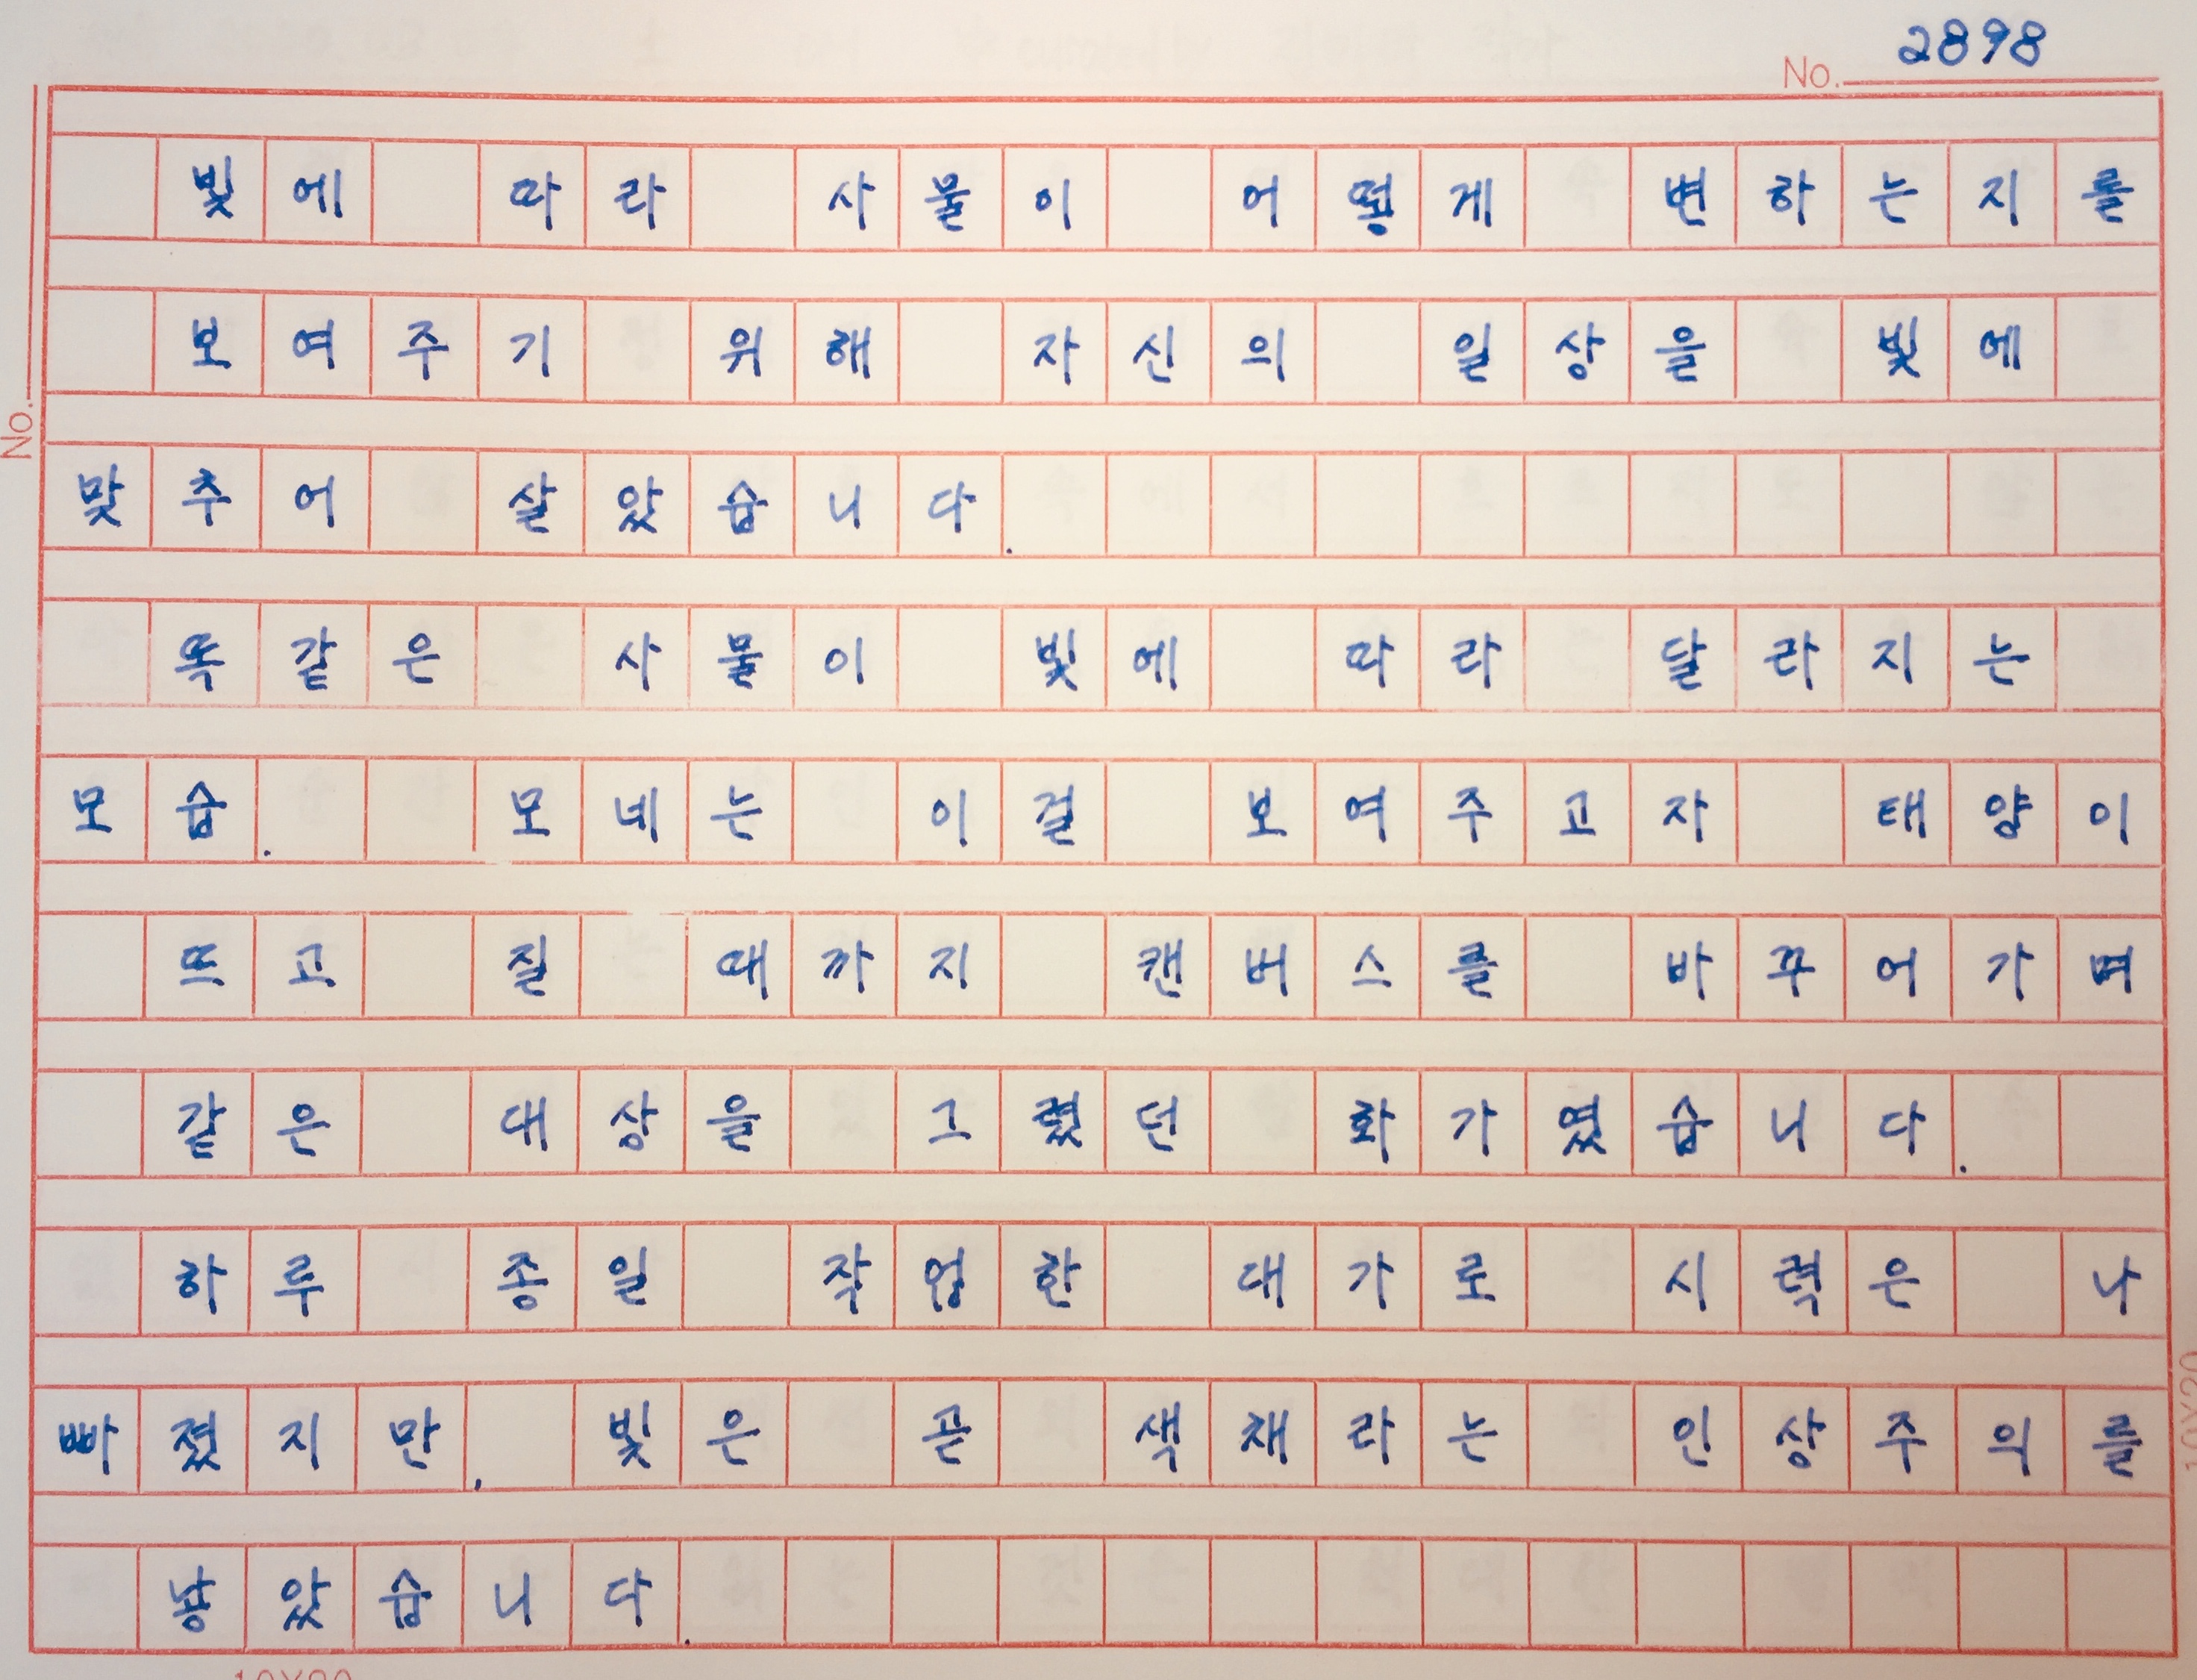 No. 2898
빛에 따라 사물이 어떻게 변하는지를
보여주기 위해 자신의 일상을 빛에
맞추어 살았습니다.
똑같은 사물이 빛에 따라 달라지는
모습. 모네는 이걸 보여주고자 태양이
뜨고 질 때까지 캔버스를 바꾸어가며
같은 대상을 그렸던 화가였습니다.
하루 종일 작업한 대가로 시력은 나
빠졌지만, 빛은 곧 색채라는 인상주의를
낳았습니다.
No.
10X20
10X20